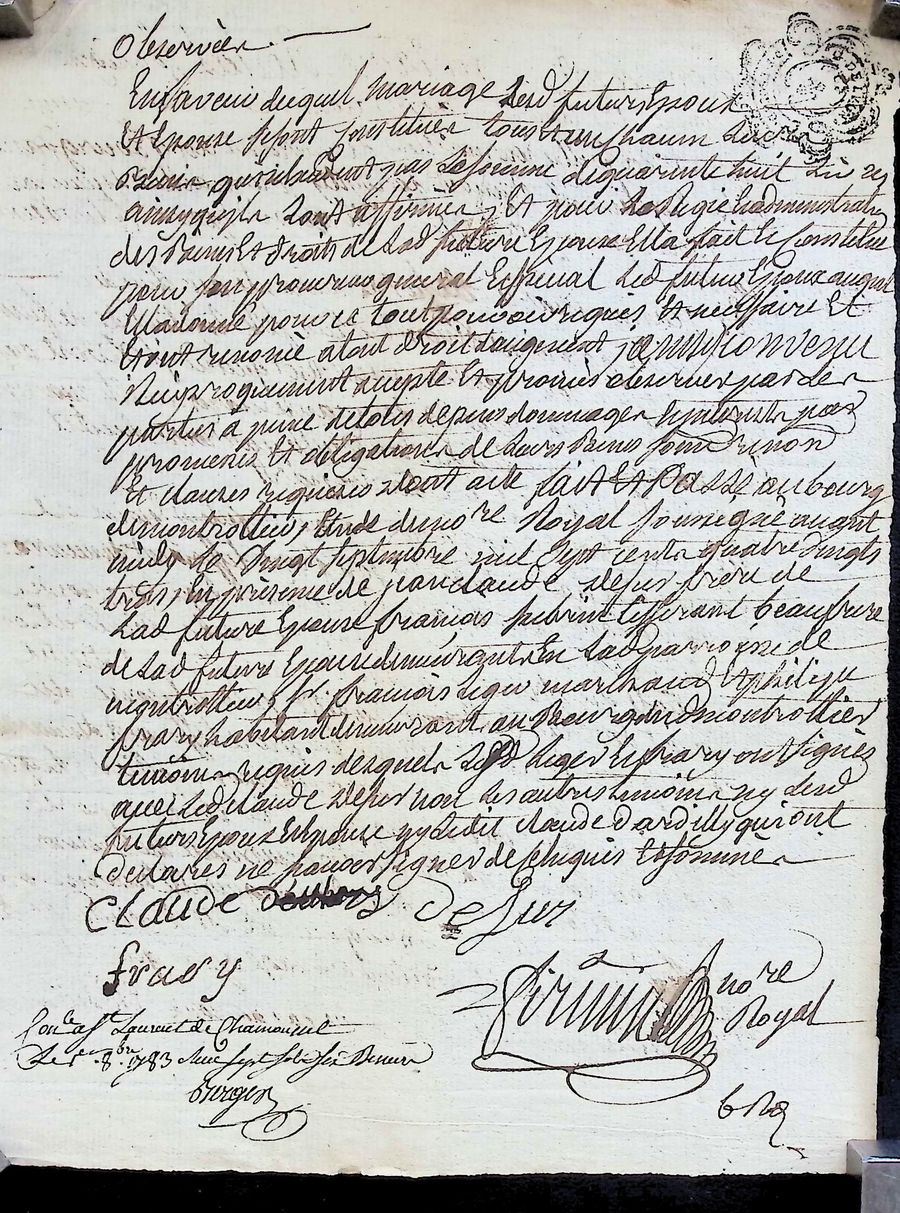 observées.
En faveur duquel mariage Lesd futurs Epoux
Et Epouse se sont constitués tous et un chacun Leurs
Biens qui n'excèdent pas La somme de quarante huit Livres
ainsy qu'ils Lont affirmés, Et pour La Regie Et administration
des Biens Et droits de Lad future Epouse Elle a fait Et Constitué
pour son procureur general Et special Led futur Epoux auquel
Elle a donné pouvoir tout pouvoir requis Et necessaire Et
Et ont renoncé a tout droit ainsy convenu
Reciproquement accepté Et promis observer par Les
parties a peine de tous depens dommages Interests par
promesses Et obligations de Leurs Biens soumd renond
Et clauses requises dont acte fait Et Passé au bourg
de montrottier, Etude du no.re Royal soussigné avant
midy Le Vingt Septembre mil Sept cents quatre Vingts
trois, En présence de jean claude frere de
Lad future Epouse françois beaufrere
de Lad future Epouse demeurants En Lad parroisse de
montrottier, Sr. françois Leger marchand Et philippe
frary habitant demeurant au Bourg dud montrottier
temoins requis desquels Lesd Leger Et frary ont signés
avec Led claude non Les autres temoins ny Lesd
futurs Epoux Et Epouse ny Ledit claude Dardilly qui ont
declarés ne pouvoir signer de ce Enquis Et sommés
CLAUDE
frary
no.re
Royal
Con.lé a St Laurent de Chamousset
Le 1er 8.bre 1783 Reçu Sept sols six Deniers
Berger